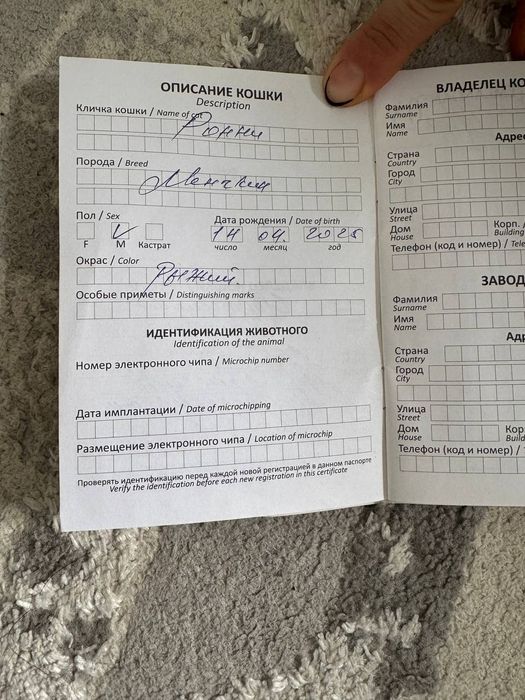 ОПИСАНИЕ КОШКИ
Description
Кличка кошки / Name of cat
Рыжик
Порода / Breed
Манчкин
Пол / Sex
Дата рождения / Date of birth
F
V
M
Кастрат
14 04. 2025
число месяц год
Окрас / Color
Рыжий
Особые приметы / Distinguishing marks
ИДЕНТИФИКАЦИЯ ЖИВОТНОГО
Identification of the animal
Номер электронного чипа / Microchip number
Дата имплантации / Date of microchipping
Размещение электронного чипа / Location of microchip
Проверять идентификацию перед каждой новой регистрацией в данном паспорте
Verify the identification before each new registration in this certificate
ВЛАДЕЛЕЦ КО
Фамилия
Surname
Имя
Name
Адрес
Страна
Country
Город
City
Улица
Street
Дом
House
Корп.
Building
Телефон (код и номер) / Tele
ЗАВОД
Фамилия
Surname
Имя
Name
Адр
Страна
Country
Город
City
Улица
Street
Дом
House
Кор
Build
Телефон (код и номер) /